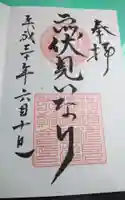 奉拝
伏見いなり
平成三十年六月十日